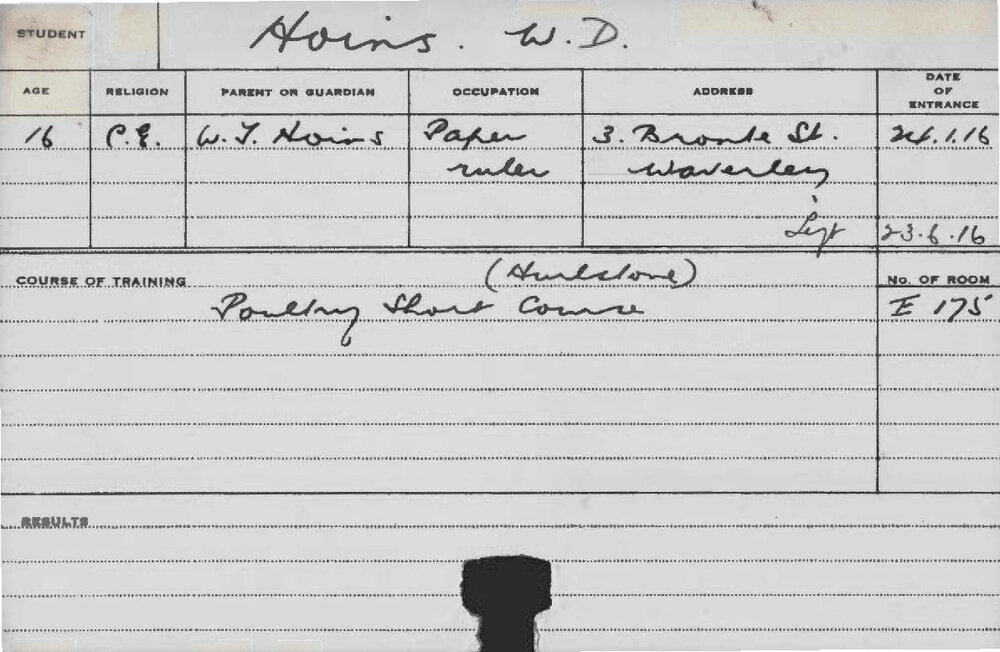 STUDENT Hoins. W.D.
AGE RELIGION PARENT OR GUARDIAN OCCUPATION ADDRESS DATE OF ENTRANCE
16 C.E. W. J. Hoins Paper 3. Bronte St. 24.1.16
ruler Waverley
Left 23.6.16
COURSE OF TRAINING (Hurlstone) No. OF ROOM
Poultry Short Course E 175
RESULTS